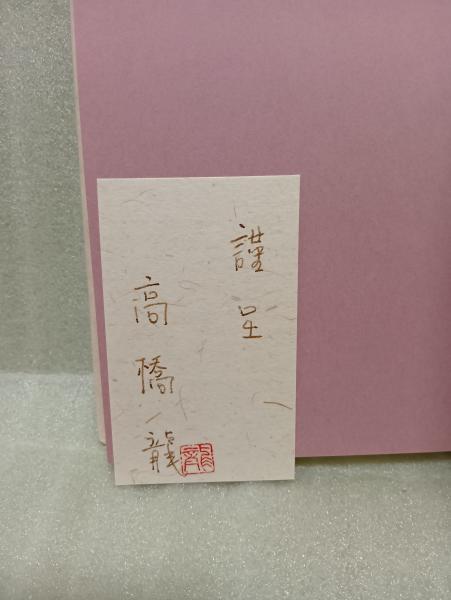 謹呈
高橋龍
龍